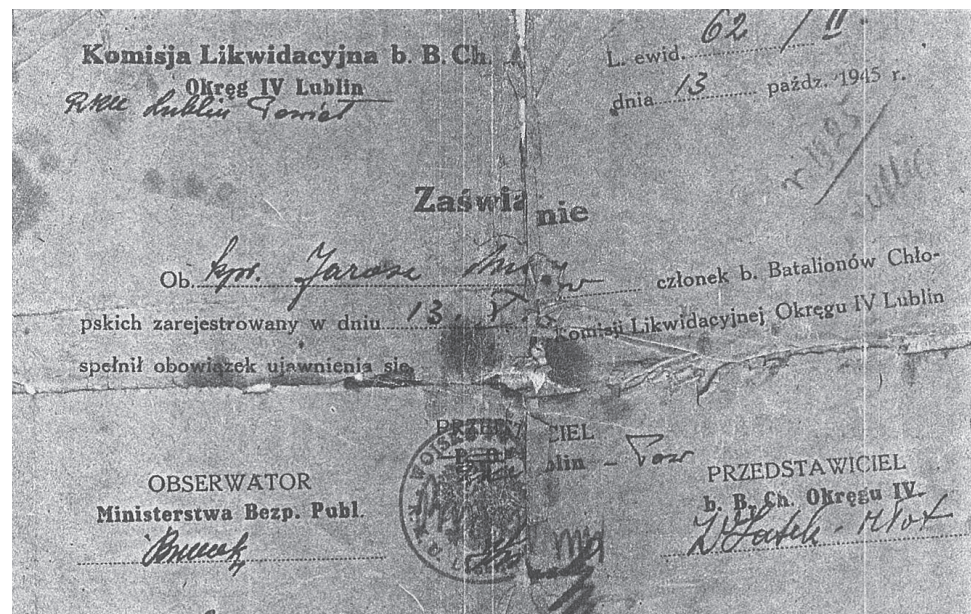 Komisja Likwidacyjna b. B. Ch.
Okręg IV Lublin
Lublin Powiat
L. ewid. 62 / II
dnia 13 paźdz. 1945 r.
r 1925
Zaświa nie
Ob. kpr. Jarosz członek b. Batalionów Chło-
pskich zarejestrowany w dniu 13. Komisji Likwidacyjnej Okręgu IV Lublin
spełnił obowiązek ujawnienia się.
CIEL
blin - Pow
OBSERWATOR
Ministerstwa Bezp. Publ.
PRZEDSTAWICIEL
b. B. Ch. Okręgu IV.